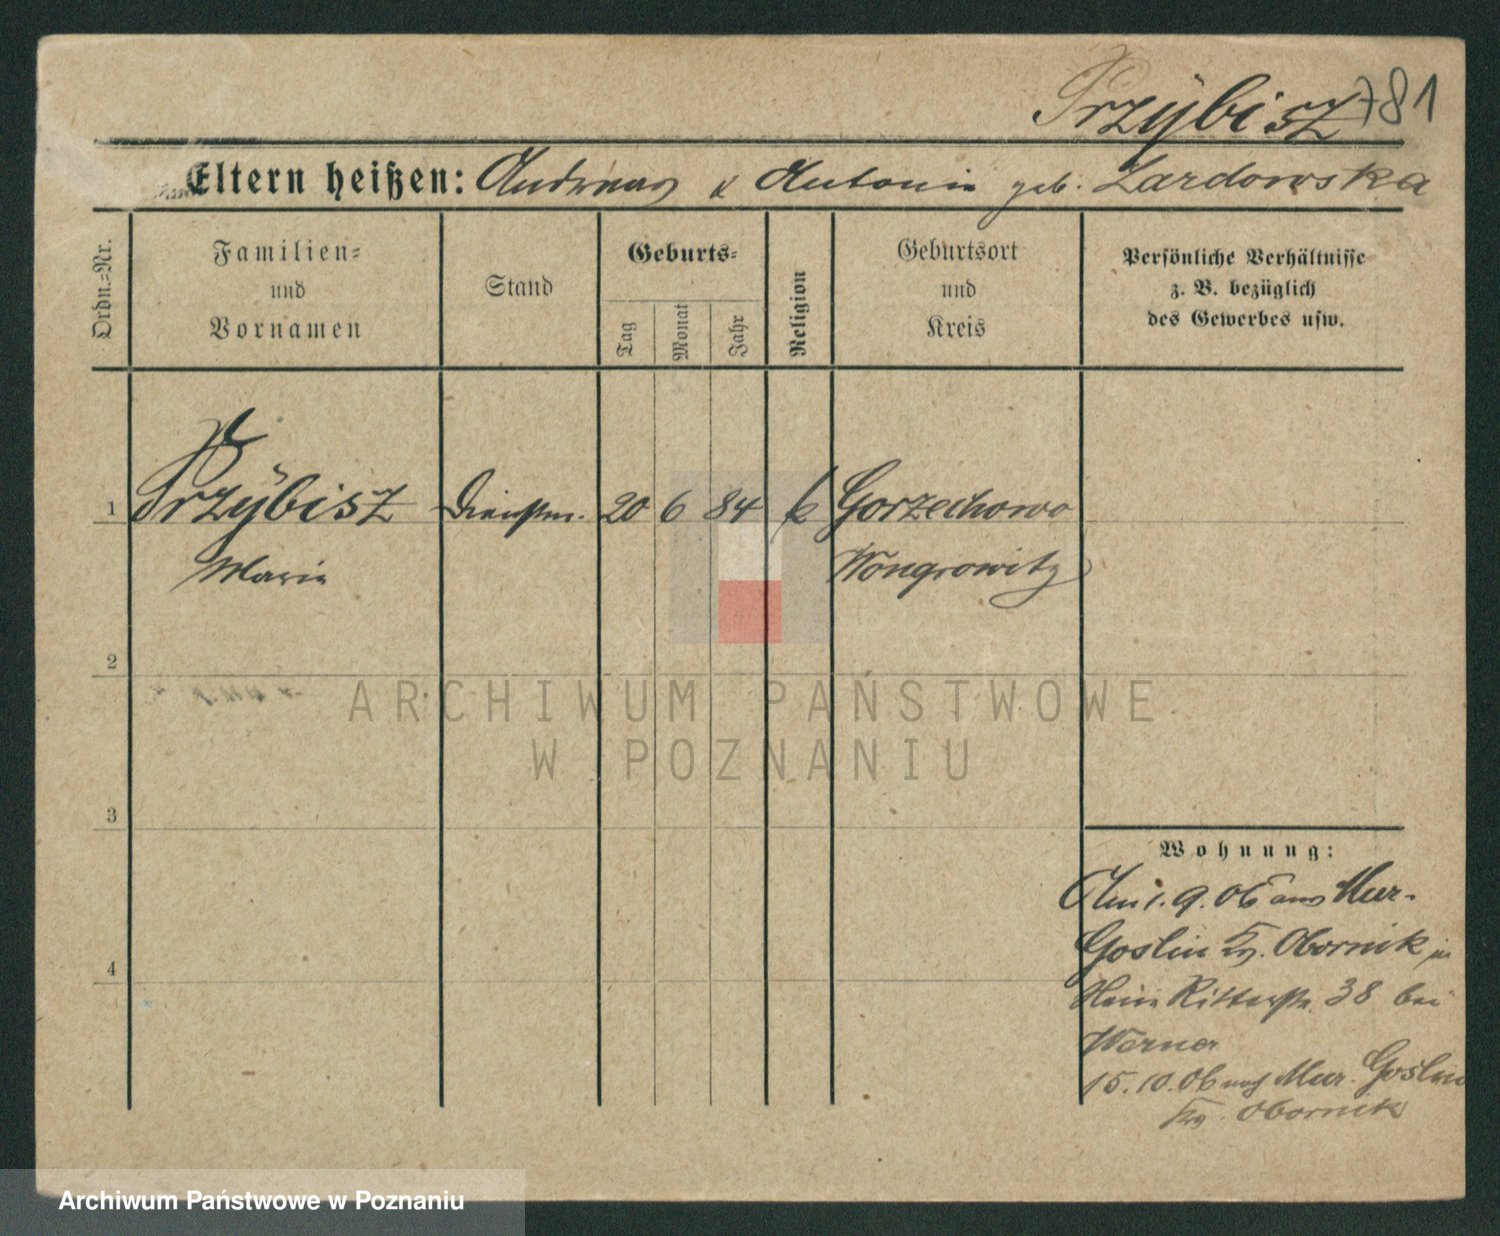 Przÿbisz
781
Eltern heißen: Andreas & Antonie geb. Zardowska
Ordn.-Nr.
Familien-
und
Vornamen
Stand
Geburts-
Tag
Monat
Jahr
Religion
Geburtsort
und
Kreis
Persönliche Verhältnisse
z. B. bezüglich
des Gewerbes usw.
1
Przÿbisz
Dienstm.
20
6
84
k
Gorzechowo
Marie
Wongrowitz
2
3
4
Wohnung:
Am 1. 9. 06 aus Mur-
Goslin Kr. Obornik in
Ritterstr. 38 bei
Werner
15. 10. 06 nach Mur. Goslin
Kr. Obornik
ARCHIWUM PAŃSTWOWE
W POZNANIU
Archiwum Państwowe w Poznaniu